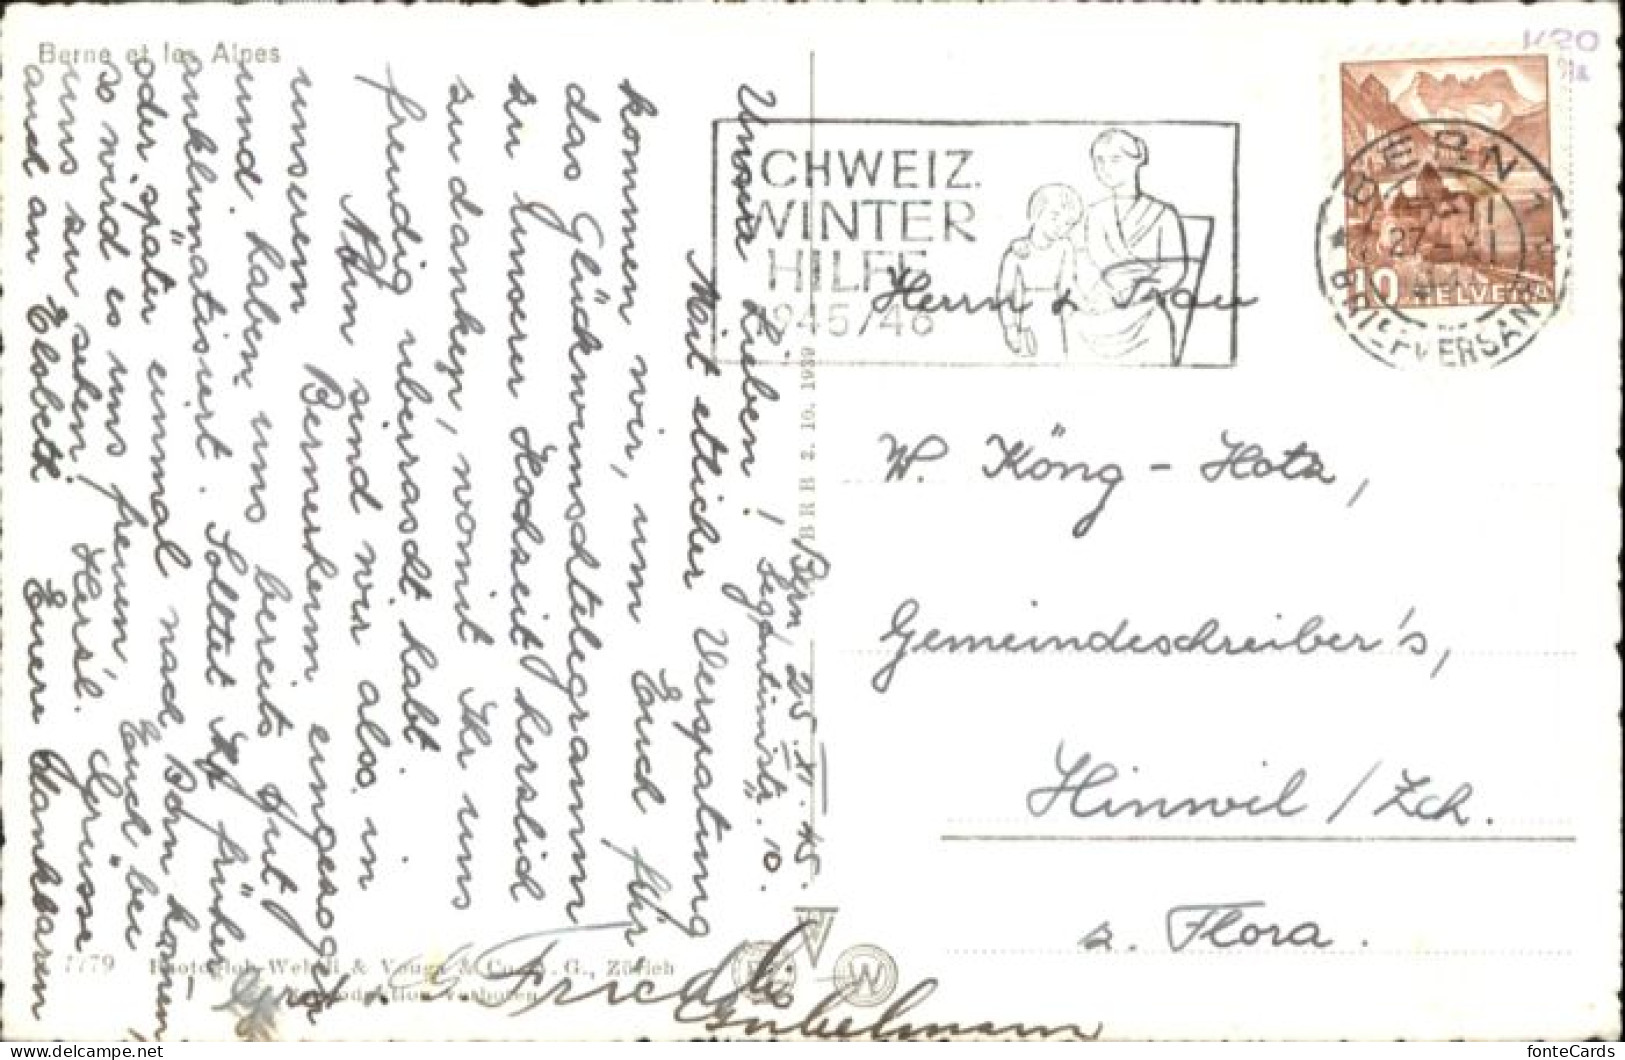 Berne et les Alpes
Bern, 25. XI. 45.
Segantinistr. 10.
Unsere Lieben!
Mit etlicher Verspätung
kommen wir, um Euch für
das Glückwunschtelegramm
zu unserer Hochzeit herzlich
zu danken, womit Ihr uns
freudig überrascht habt.
Nun sind wir also in
unserem Bernerheim eingezogen
und haben uns bereits gut
anklimatisiert. Solltet Ihr früher
oder später einmal nach Bern kommen,
so wird es uns freuen, Euch bei
uns zu sehen. Herzl. Grüsse
auch an Elsbeth Euere dankbaren
Gubelmann
7779 Photoglob-Wehrli & Vouga & Co. A. G., Zürich
Reproduktion verboten
BRB 2. 10. 1939
W
SCHWEIZ.
WINTER
HILFE
1945/46
BERN 1
27. XI
BRIEFVERSAND
10 HELVETIA
Herrn & Frau
W. Köng - Hotz,
Gemeindeschreiber's,
Hinwil / Zch.
z. Flora.
fonteCards